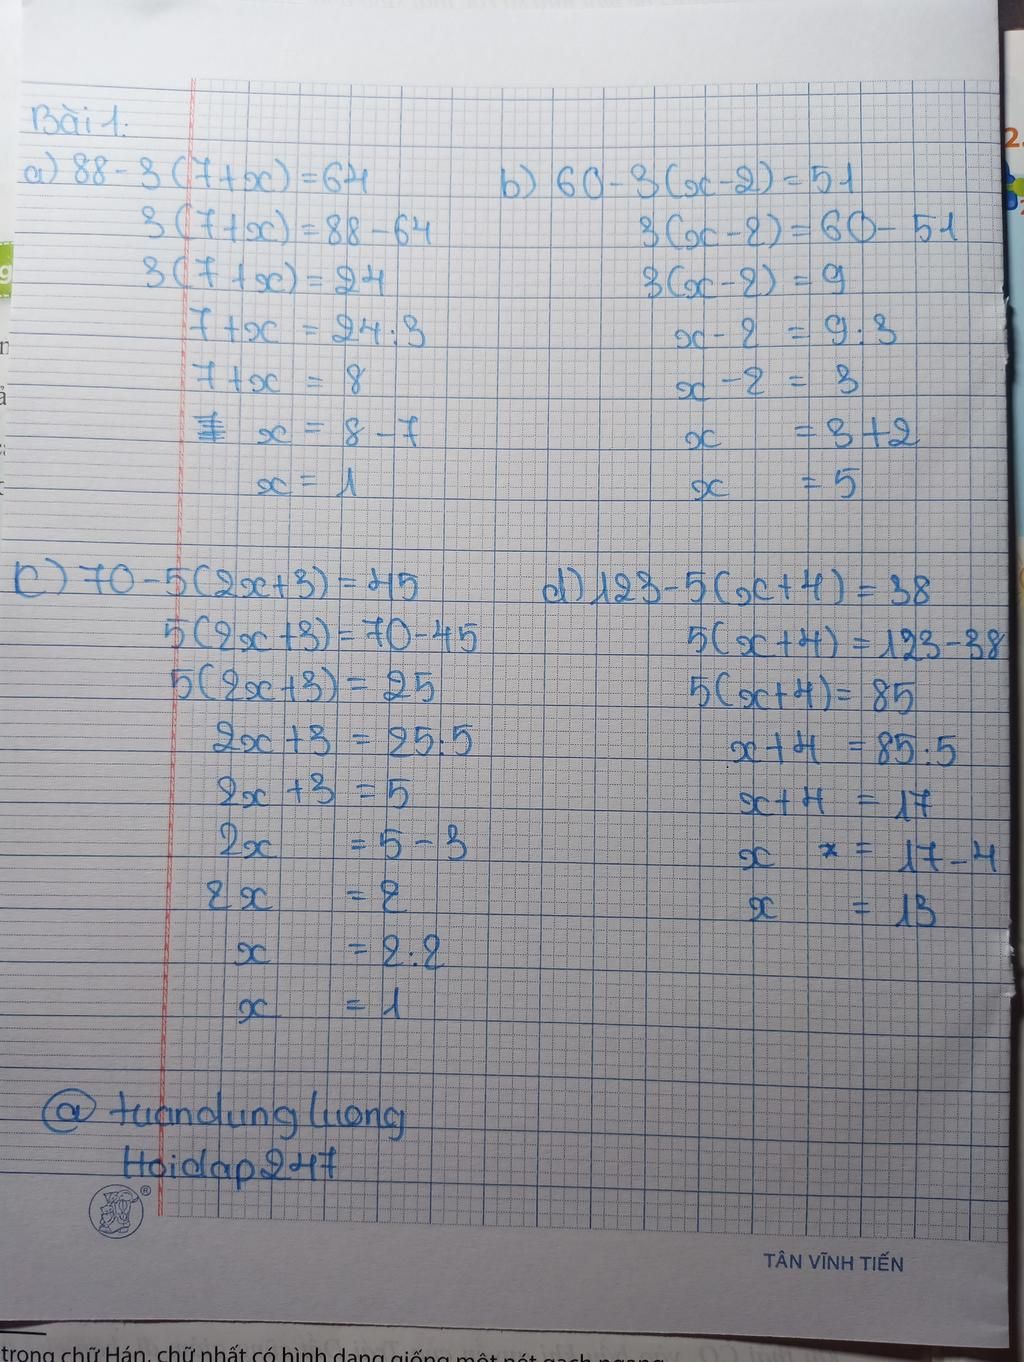 Bài 1:
a) 88 - 3(7+x) = 64
3(7+x) = 88 - 64
3(7+x) = 24
7+x = 24:3
7+x = 8
x = 8 - 7
x = 1
b) 60 - 3(x-2) = 51
3(x-2) = 60 - 51
3(x-2) = 9
x-2 = 9:3
x-2 = 3
x = 3+2
x = 5
c) 70 - 5(2x+3) = 45
5(2x+3) = 70-45
5(2x+3) = 25
2x+3 = 25:5
2x+3 = 5
2x = 5 - 3
2x = 2
x = 2:2
x = 1
d) 123 - 5(x+4) = 38
5(x+4) = 123-38
5(x+4) = 85
x+4 = 85:5
x+4 = 17
x = 17-4
x = 13
@ tuandung luong
Hoidap247
®
TÂN VĨNH TIẾN
trong chữ Hán, chữ nhất có hình dạng giống một nét gạch ngang
2.